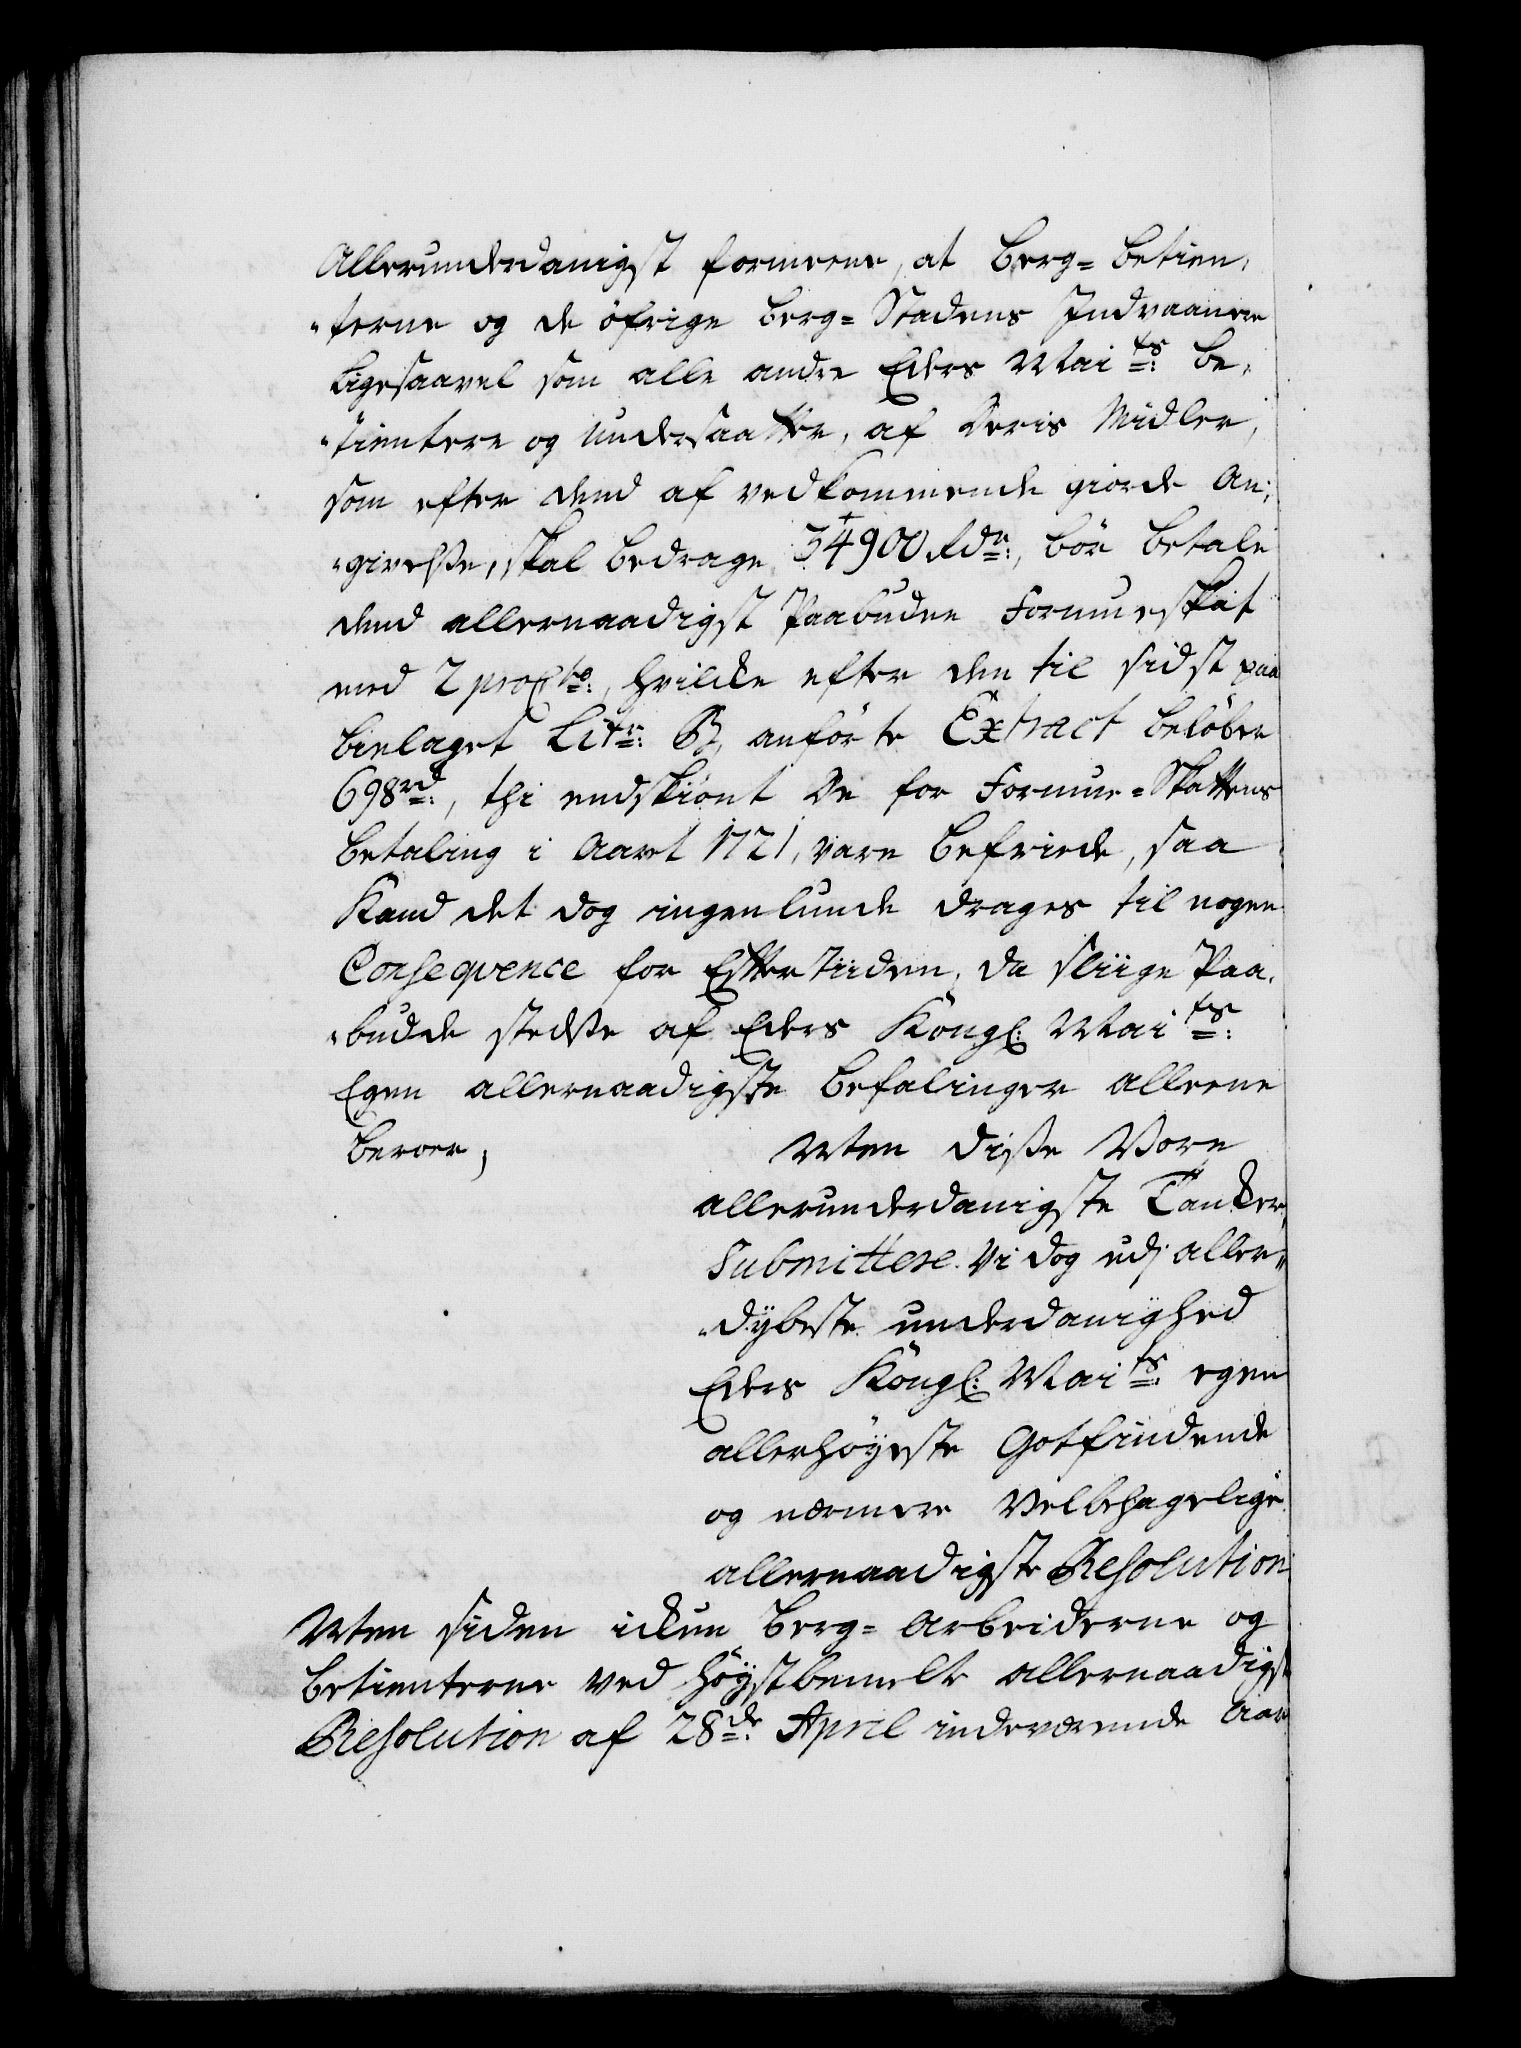 Allerunderdanigst formeene, at Berg= betien,
„terne og de öfrige Berg= Stadens Indvaanere
ligesaavel som alle andre Eders Mai ts: be,
„tientere og undersaatter, af deris Midler,
som efter dend af vedkommende giorde An,
„givelsse, skal bedrage 34900 Rdr:, bör betale
dend allernaadigst Paabudne Formueskat
med 2 proCto:, hvilcke efter den til sidst paa
bielaget Litr: B, anförte Extract belöber
698rd:, thi endskiönt De for Formue=Skattens
betaling i Aaret 1721, vare befriede, saa
Kand det dog ingenlunde drages til nogen
Conseqvence for Eftertiiden, da sliige Paa,
„budde stedsse af Eders Köngl: Mai ts:
Egen allernaadigste befalinger alleene
beroer,
Men disse Vore
allerunderdanigste Tancker,
Submittere Vi dog udj aller„
„dÿbeste underdanighed
Eders Köngl: Mai ts: egen
allerhöÿeste Gotfindende
og nærmere Velbehagelige
allernaadigste Resolution
Men siden ickun Berg= Arbeiderne og
betienterne ved höÿstbemelte allernaadigst
Resolution af 28de: April indeværende Aar